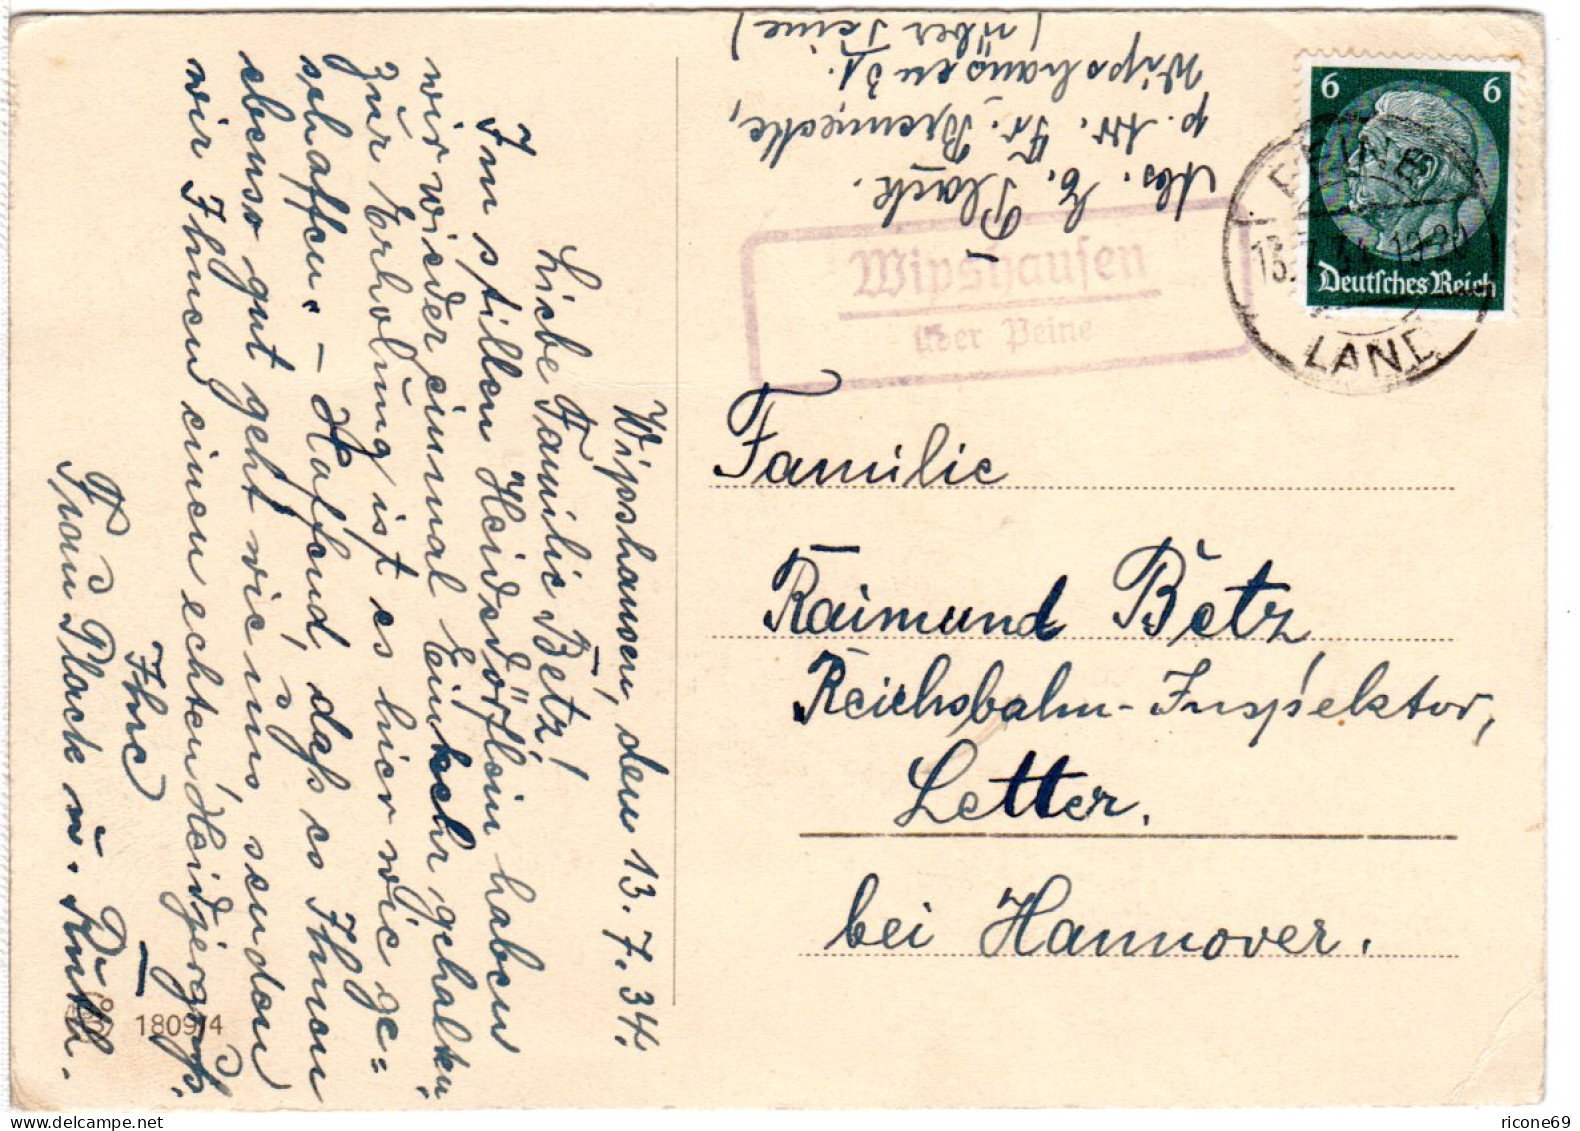 Wipshausen, den 13. 7. 34.
Liebe Familie Betz!
Im stillen Heidedörflein haben
wir wieder einmal Einkehr gehalten.
Zur Erholung ist es hier wie ge=
schaffen. – Hoffend, dass es Ihnen
ebenso gut geht wie uns, senden
wir Ihnen einen echten Heidjergruß.
Ihre
Frau Plack u. Ruth.
18094
Abs. E. Plack.
p. Adr. Fr.
Wipshausen 31.
(über Peine)
Wipshausen
über Peine
6 6
Deutsches Reich
PEINE
13. 7. 34. 19-20
LAND
Familie
Raimund Betz
Reichsbahn-Inspektor,
Letter.
bei Hannover.
delcampe.net
ricone69